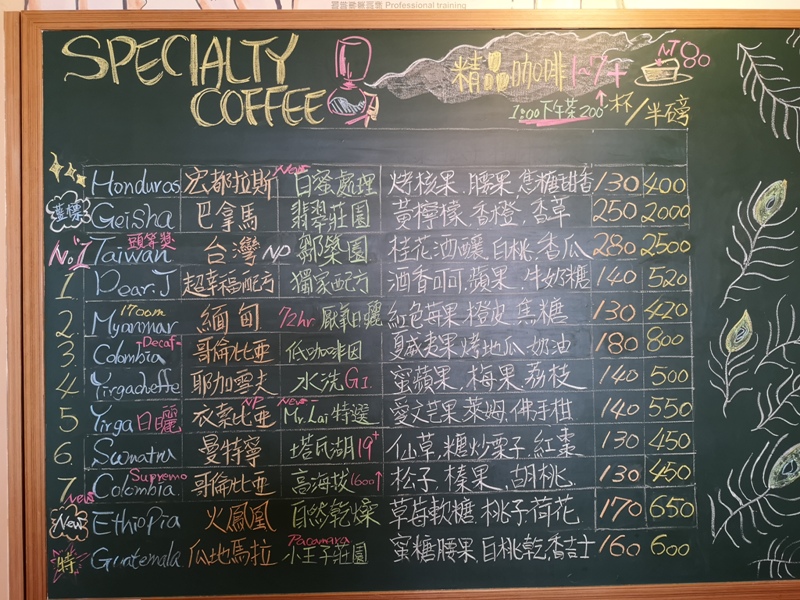 Professional training
SPECIALTY
COFFEE
精品咖啡 1~7+ NT80
1:00下午茶200↑ 杯/半磅
Honduras 宏都拉斯 News 白蜜處理 烤核果.腰果.焦糖甜香 130 400
藍標 Geisha 巴拿馬 翡翠莊園 黃檸檬.香橙.香草 250 2000
No.1 頭等獎 Taiwan 台灣 NP 鄒築園 桂花酒釀.白桃.香瓜 280 2500
1. Dear.J 超幸福配方 獨家配方 酒香可可.蘋果.牛奶糖 140 520
2. 1700m Myanmar 緬甸 72hr 厭氧日曬 紅色莓果.橙皮.焦糖 130 420
3. Colombia Decaf 哥倫比亞 低咖啡因 夏威夷果.烤地瓜.奶油 180 800
4 Yirgacheffe 耶加雪夫 水洗G1. 蜜蘋果.梅果.荔枝 140 500
5 Yirga 日曬 衣索比亞 NP News Mr.Lai特選 愛文芒果.萊姆.佛手柑 140 550
6. Sumatra 曼特寧 塔瓦湖19+ 仙草.糖炒栗子.紅棗 130 450
7. Colombia Supremo 哥倫比亞 高海拔1600↑ 松子.榛果.胡桃. 130 450
News New Ethiopia 火鳳凰 自然乾燥 草莓軟糖.桃子.荷花 170 650
特 Guatemala 瓜地馬拉 Pacamara 小王子莊園 蜜糖腰果.白桃乾.香吉士 160 600